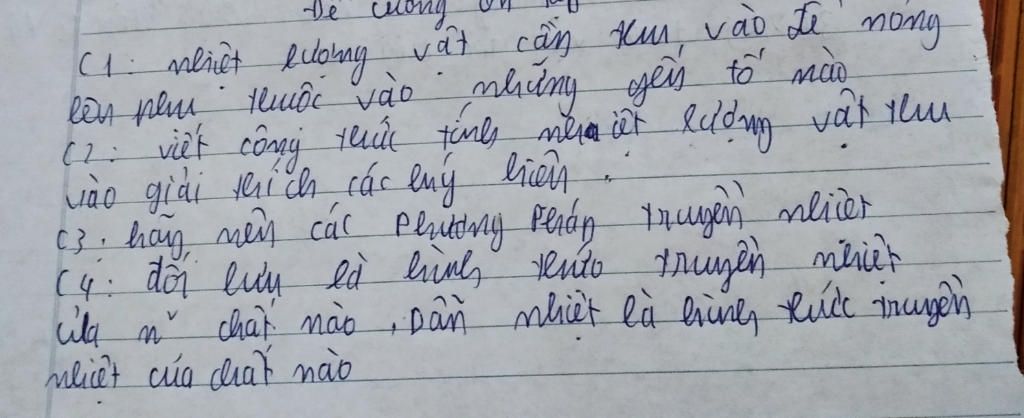 Đề cương ôn tập
C1: nhiệt lượng vật cần thu vào để nóng
lên phụ thuộc vào những yếu tố nào
C2: viết công thức tính nhiệt lượng vật thu
vào giải thích các ký hiệu.
C3. hãy nên các phương pháp truyền nhiệt
C4: đối lưu là hình thức truyền nhiệt
của n~ chất nào, Dẫn nhiệt là hình thức truyền
nhiệt của chất nào